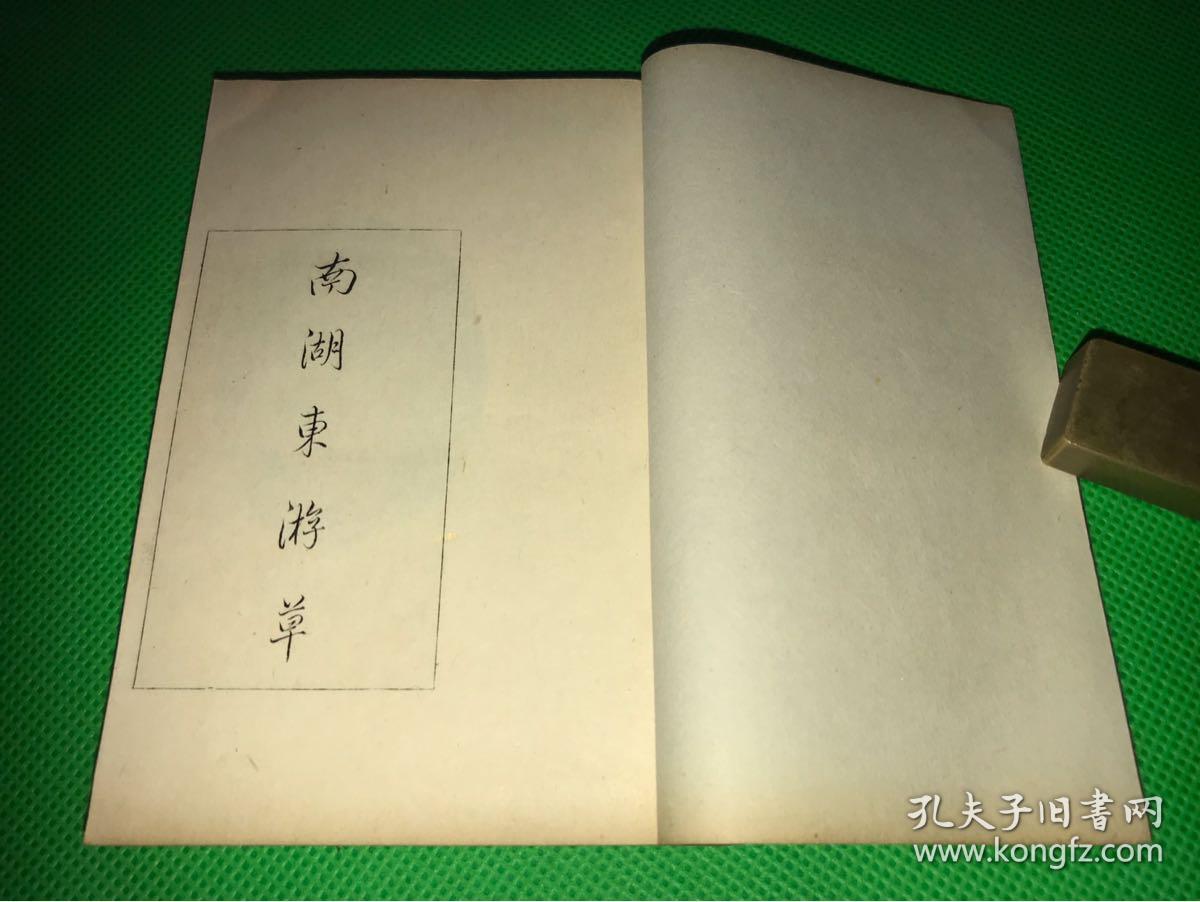 南湖東游草
孔夫子旧書网
www.kongfz.com